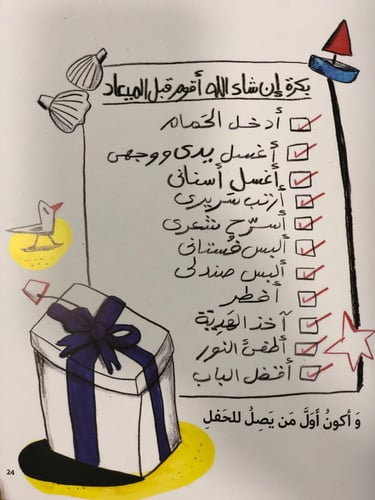 بكرة إن شاء الله أقوم قبل الميعاد
أدخل الحَمام
أغسل يدى ووجهى
أغسل أسنانى
أرتب سَريرى
أسرّح شَعرى
ألبس فُستانى
ألبس صندلى
أفطر
آخذ الهَديّة
أطفئ النور
أقفل الباب
وَ أكونُ أوَلَّ مَن يَصِلُ للحَفلِ
24